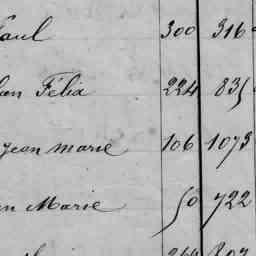 Paul 300 316
Félix 224 835
jean marie 106 1073
Marie 50 722